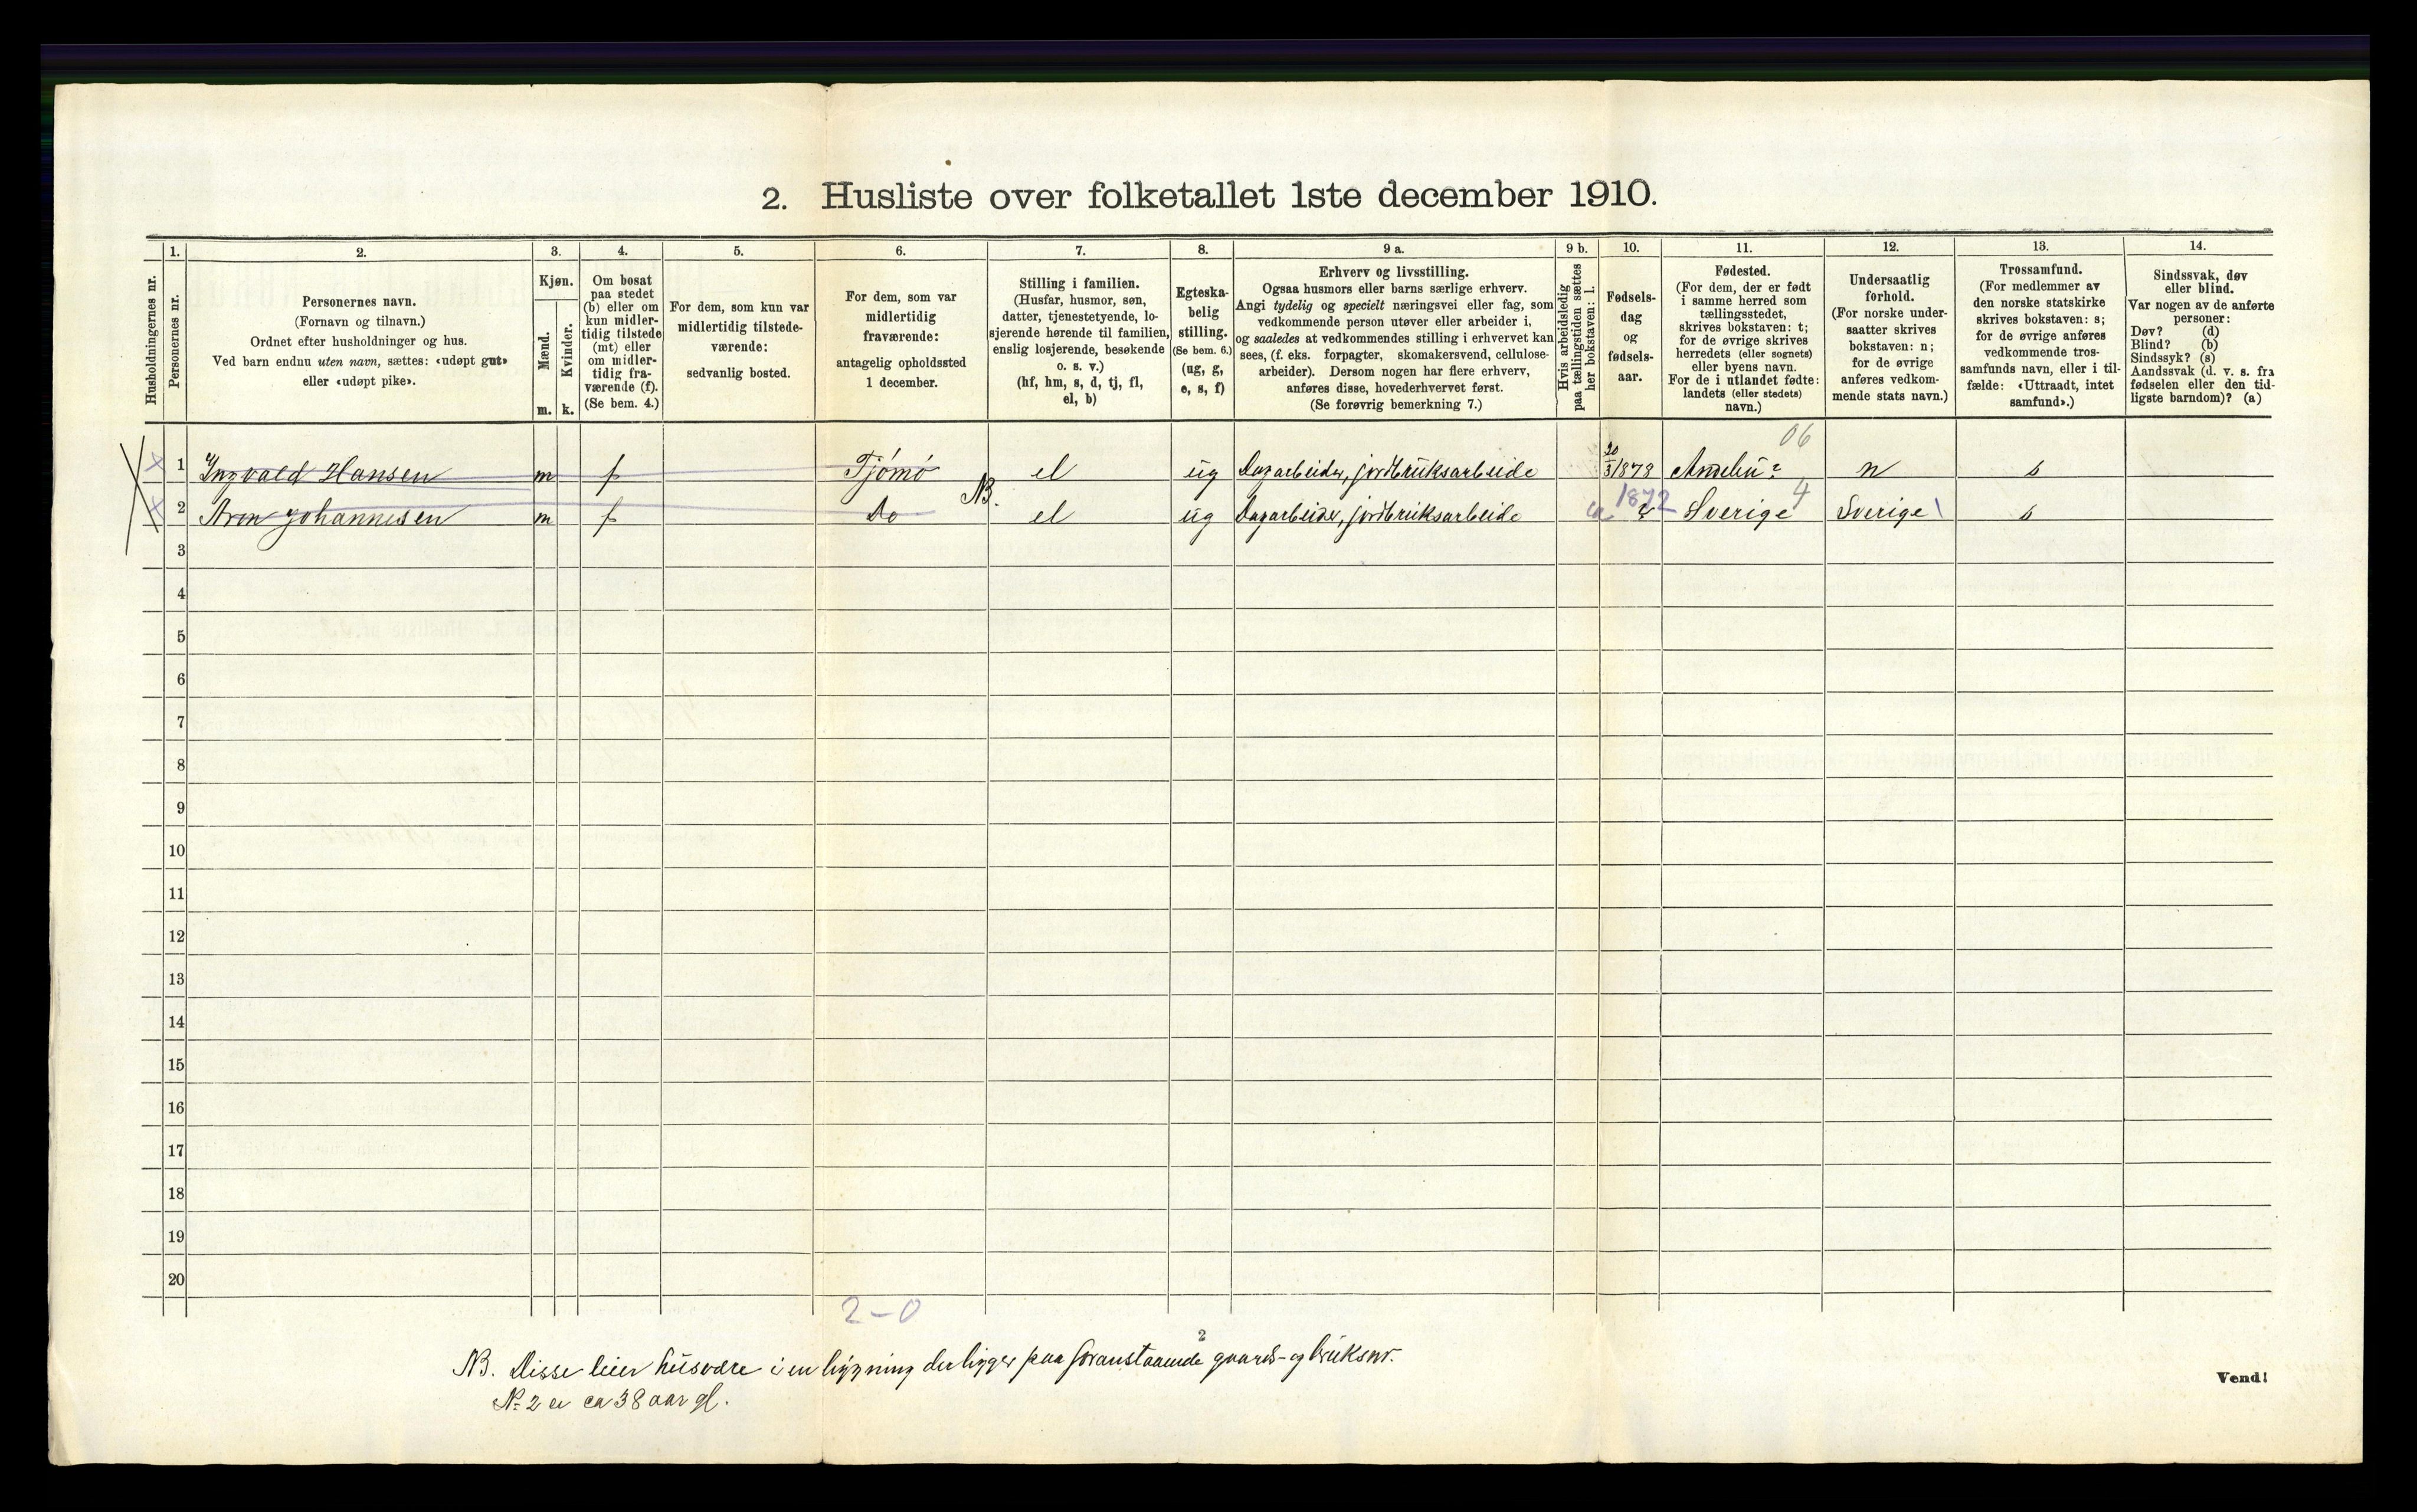 2. Husliste over folketallet 1ste december 1910.
Husholdningernes nr.
1.
Personernes nr.
2.
Personernes navn.
(Fornavn og tilnavn.)
Ordnet efter husholdninger og hus.
Ved barn endnu uten navn, sættes: «udøpt gut»
eller «udøpt pike».
3.
Kjøn.
Mænd.
m.
Kvinder.
k.
4.
Om bosat
paa stedet
(b) eller om
kun midler-
tidig tilstede
(mt) eller
om midler-
tidig fra-
værende (f).
(Se bem. 4.)
5.
For dem, som kun var
midlertidig tilstede-
værende:
sedvanlig bosted.
6.
For dem, som var
midlertidig
fraværende:
antagelig opholdssted
1 december.
7.
Stilling i familien.
(Husfar, husmor, søn,
datter, tjenestetyende, lo-
sjerende hørende til familien,
enslig losjerende, besøkende
o. s. v.)
(hf, hm, s, d, tj, fl,
el, b)
8.
Egteska-
belig
stilling.
(Se bem. 6.)
(ug, g,
e, s, f)
9 a.
Erhverv og livsstilling.
Ogsaa husmors eller barns særlige erhverv.
Angi tydelig og specielt næringsvei eller fag, som
vedkommende person utøver eller arbeider i,
og saaledes at vedkommendes stilling i erhvervet kan
sees, (f. eks. forpagter, skomakersvend, cellulose-
arbeider). Dersom nogen har flere erhverv,
anføres disse, hovederhvervet først.
(Se forøvrig bemerkning 7.)
9 b.
Hvis arbeidsledig
paa tællingstiden sættes
her bokstaven: l.
10.
Fødsels-
dag
og
fødsels-
aar.
11.
Fødested.
(For dem, der er født
i samme herred som
tællingsstedet,
skrives bokstaven: t;
for de øvrige skrives
herredets (eller sognets)
eller byens navn.
For de i utlandet fødte:
landets (eller stedets)
navn.)
12.
Undersaatlig
forhold.
(For norske under-
saatter skrives
bokstaven: n;
for de øvrige
anføres vedkom-
mende stats navn.)
13.
Trossamfund.
(For medlemmer av
den norske statskirke
skrives bokstaven: s;
for de øvrige anføres
vedkommende tros-
samfunds navn, eller i til-
fælde: «Uttraadt, intet
samfund».)
14.
Sindssvak, døv
eller blind.
Var nogen av de anførte
personer:
Døv? (d)
Blind? (b)
Sindssyk? (s)
Aandssvak (d. v. s. fra
fødselen eller den tid-
ligste barndom)? (a)
06
x 1 Ingvald Hansen m f Tjömö el ug Dagarbeider, jordbruksarbeide 20/3 1878 Andebu? n s
x 2 Aron Johannesen m f Do NB. el ug Dagarbeider, jordbruksarbeide ca 1872 ? Sverige 4 Sverige s
3
4
5
6
7
8
9
10
11
12
13
14
15
16
17
18
19
20
2-0
2
NB. Disse leier husvære i en bygning der ligger paa foranstaaende gaards- og bruksnr.
No 2 er ca 38 aar gl.
Vend!